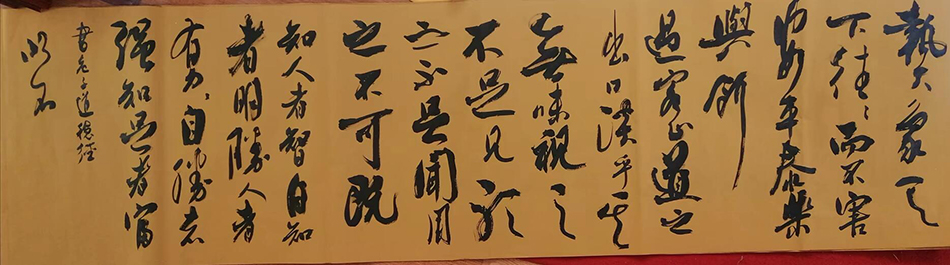 執大象天
下往〻而不害
安平泰樂
與餌
過客止道之
出口淡乎其
無味視之
不足見聽
之不足聞用
之不可既
知人者智自知
者明勝人者
有力自勝者
強知足者富
書老子道德經